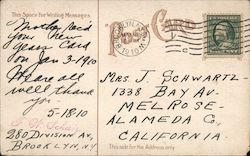 This Space For Writing Messages
Post Card
you New
years Card
on Jan 3-1910
We are all
well thank
you
5-18-10
280 Division Av,
Brooklyn, N.Y.
Mrs. J. Schwartz
1338 Bay Av-
Melrose-
Alameda Co,
California.
This side for the Address only